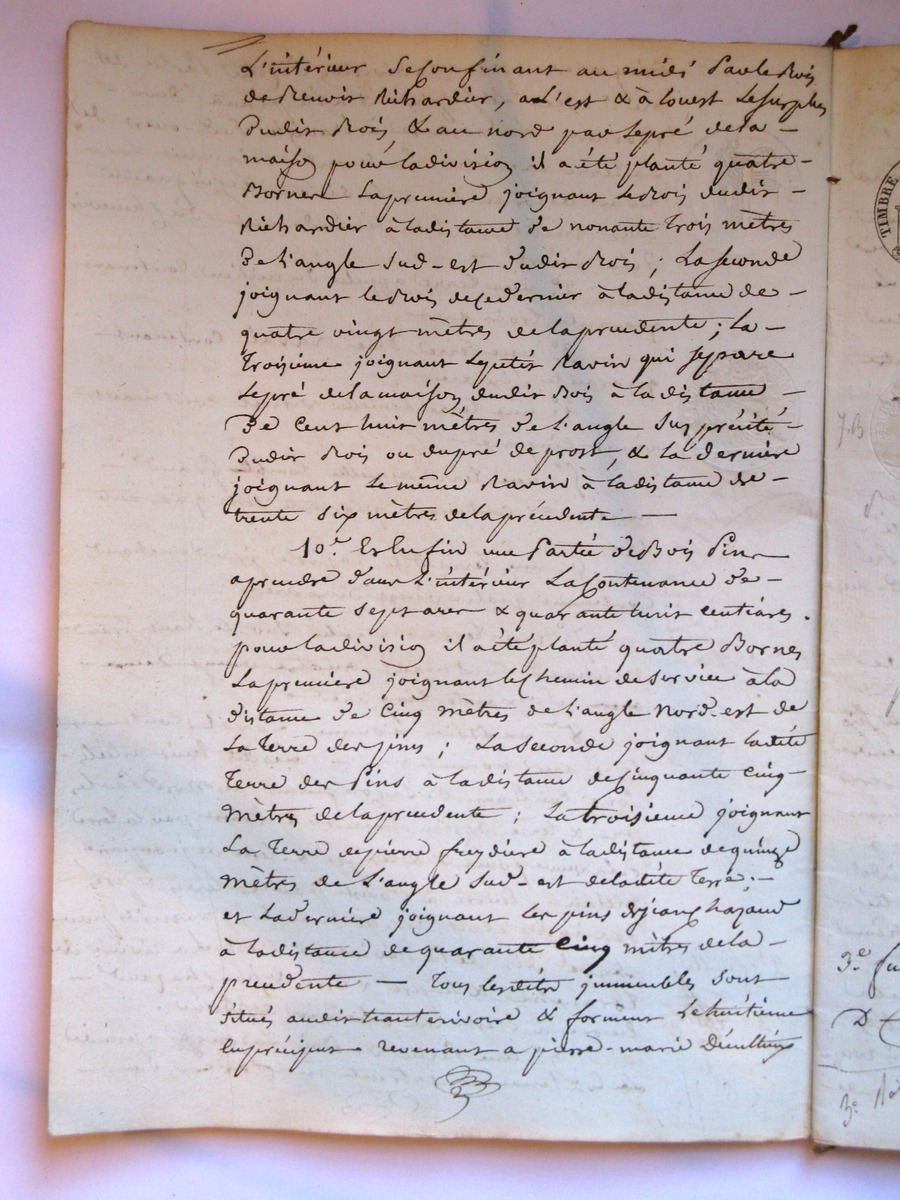 L'intérieur Se Confinant au midi par le Bois
de Benoit Richardier, a L'est & à louest Le surplus
Dudit Bois & au nord par Le pré de la -
maison pour la division il a été planté quatre -
Bornes La première joignant Le Bois dudit -
Richardier à la distance de nonante trois mètres
De L'angle Sud-est dudit Bois ; La Seconde
joignant le Bois de ce dernier à la distance de -
quatre vingt mètres de la precedente ; La -
Troisième joignant Le petit Ravin qui separe
Le pré de la maison dudit Bois à la distance -
De Cent huit mètres de L'angle Sus précité -
Dudit Bois ou du pré de prost, & la dernière
joignant Le même Ravin à la distance de -
trente Six mètres de la précédente —
10.° Et Enfin une Partie de Bois Pins
a prendre dans L'intérieur La Contenance de -
quarante Sept ares & quarante huit Centiares.
pour la division il a été planté quatre Bornes
La première joignant le Chemin de Service à la
distance de Cinq mètres de L'angle Nord-est de
La Terre des pins ; La Seconde joignant la dite
Terre des Pins à la distance de Cinquante Cinq -
mètres de la precedente ; La troisieme joignant
La Terre de pierre freydière à la distance de quinze
mètres de L'angle Sud-est de la dite Terre ; -
et La dernière joignant les pins de jean
à la distance de quarante Cinq mètres de la -
precedente — Tous les dits immeubles Sont
Situés audit hauterivoire & forment Le huitième
En préciput revenant a pierre-marie
TIMBRE
3.e
D
3.e